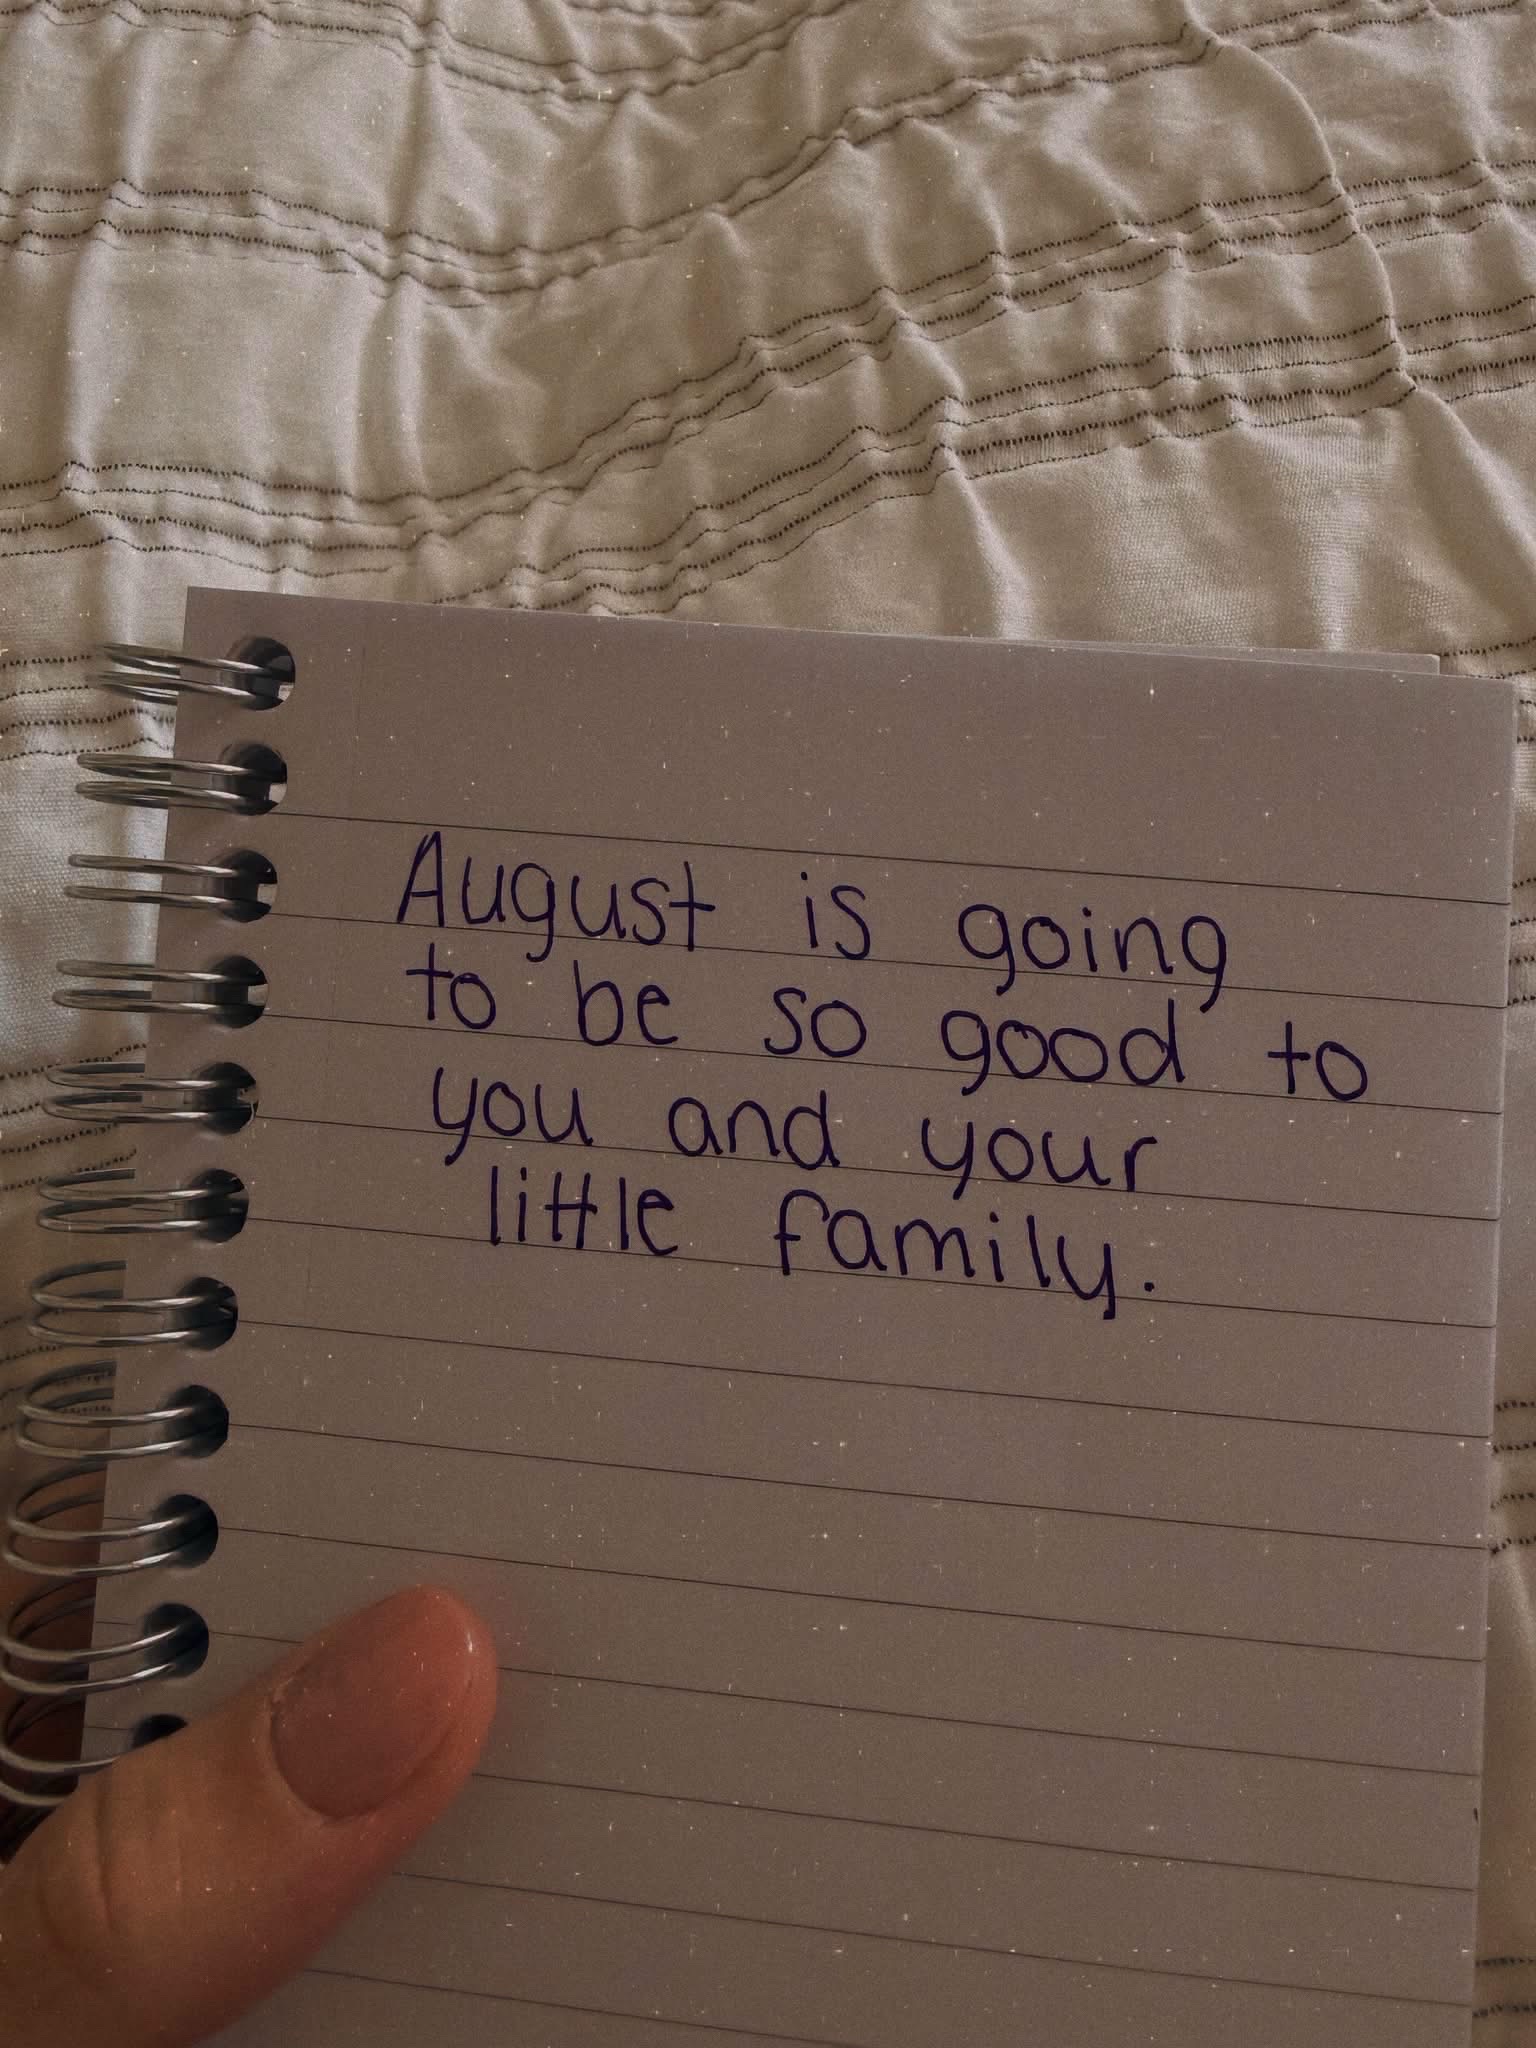 August is going
to be so good to
you and your
little family.